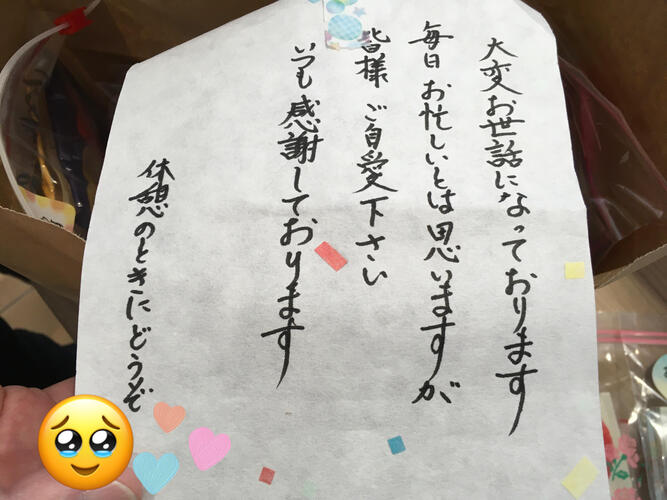 大変お世話になっております
毎日お忙しいとは思いますが
皆様ご自愛下さい
いつも感謝しております
休憩のときにどうぞ